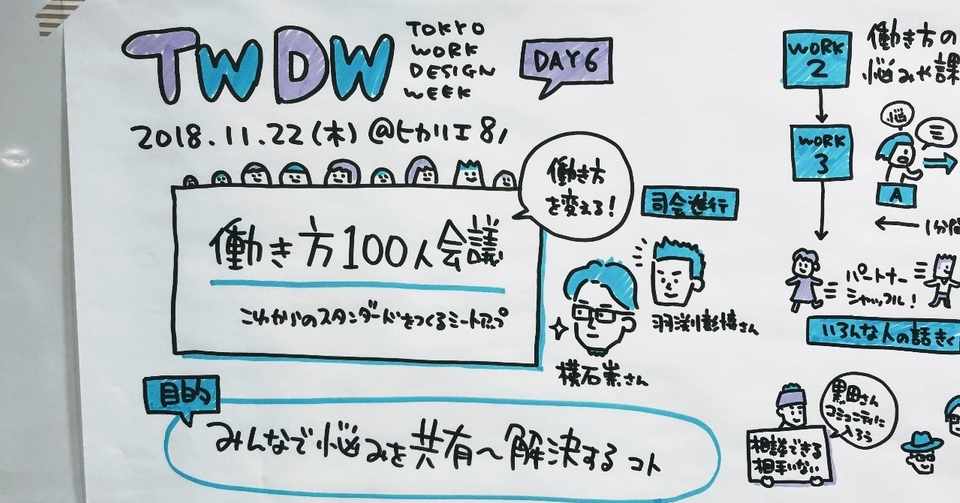 TWDW
TOKYO
WORK
DESIGN
WEEK
DAY6
2018.11.22(木)@ヒカリエ8/
働き方
を変える!
働き方100人会議
これからのスタンダードをつくるミートアップ
司会進行
横石崇さん
羽渕彰博さん
目的
みんなで悩みを共有〜解決するコト
WORK
2
働き方の
悩みや課
WORK
3
悩
A
1分間
パートナー
シャッフル!
いろんな人の話きく
黒田さん
コミュニティに
入ろう
相談できる
相手いない